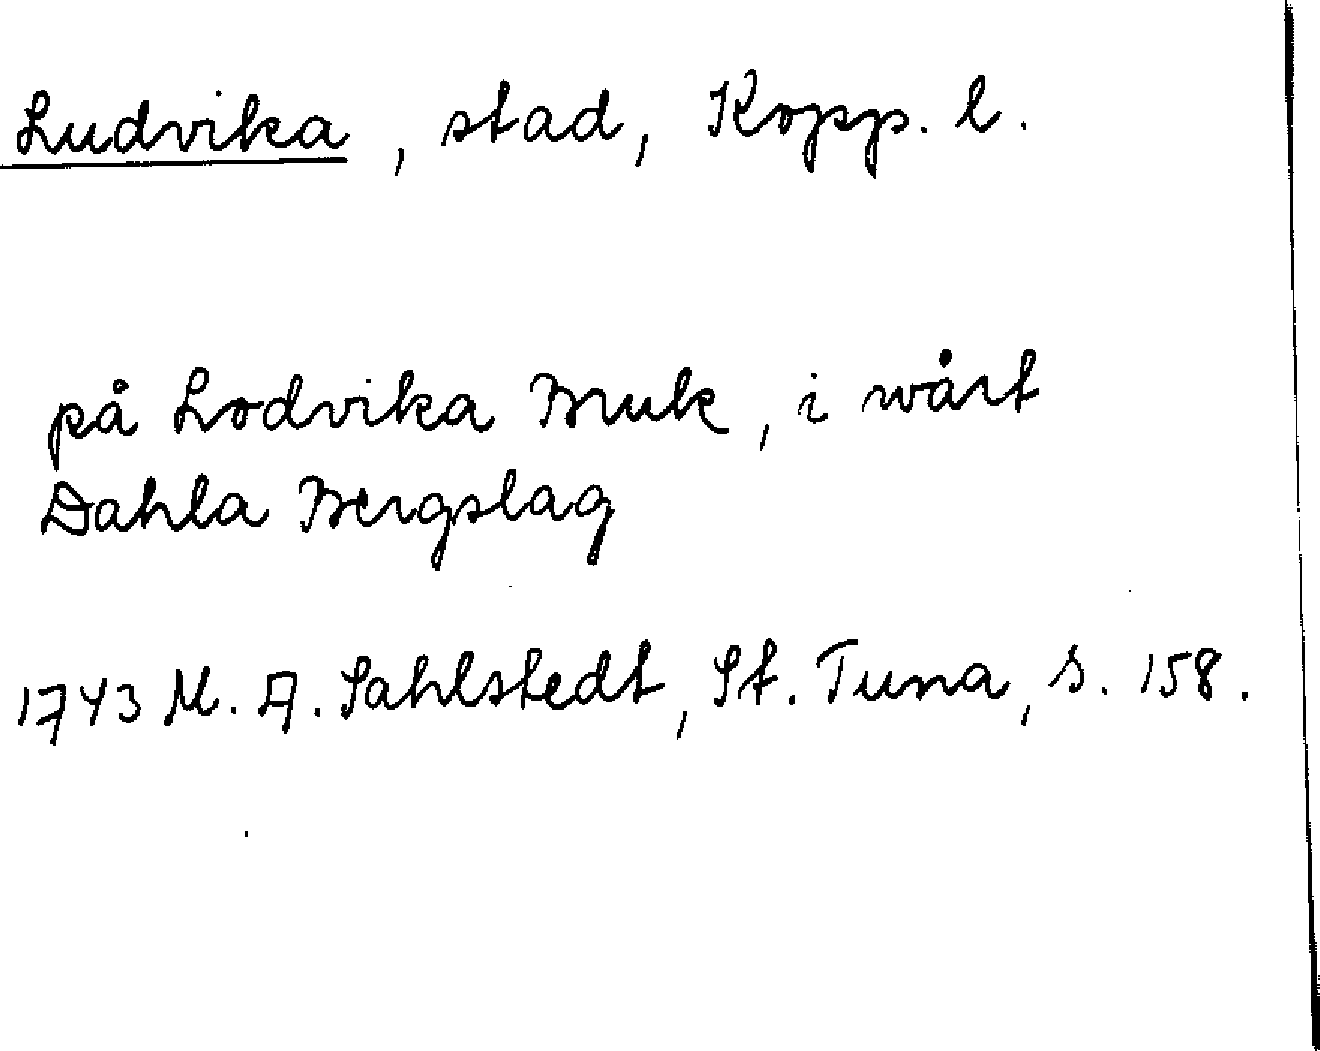 Ludvika, stad, Kopp. l.
på Lodvika Bruk, i wårt
Dahla Bergslag
1743 M. A. Sahlstedt, St. Tuna, s. 158.